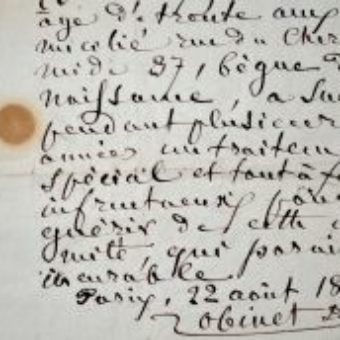 âgé de trente ans
micilié rue du Cher
midi 37, bègue d
naissance, a su
pendant plusieur
années un traitem
spécial et tout à f
infructueux pour
guérir de cette i
mité, qui parai
incurable
Paris, 22 août 18
Robinet D